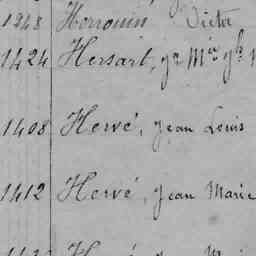 1248 Horrouin Victor
1424 Hersart,
1408 Hervé, Jean Louis
1412 Hervé, Jean Marie